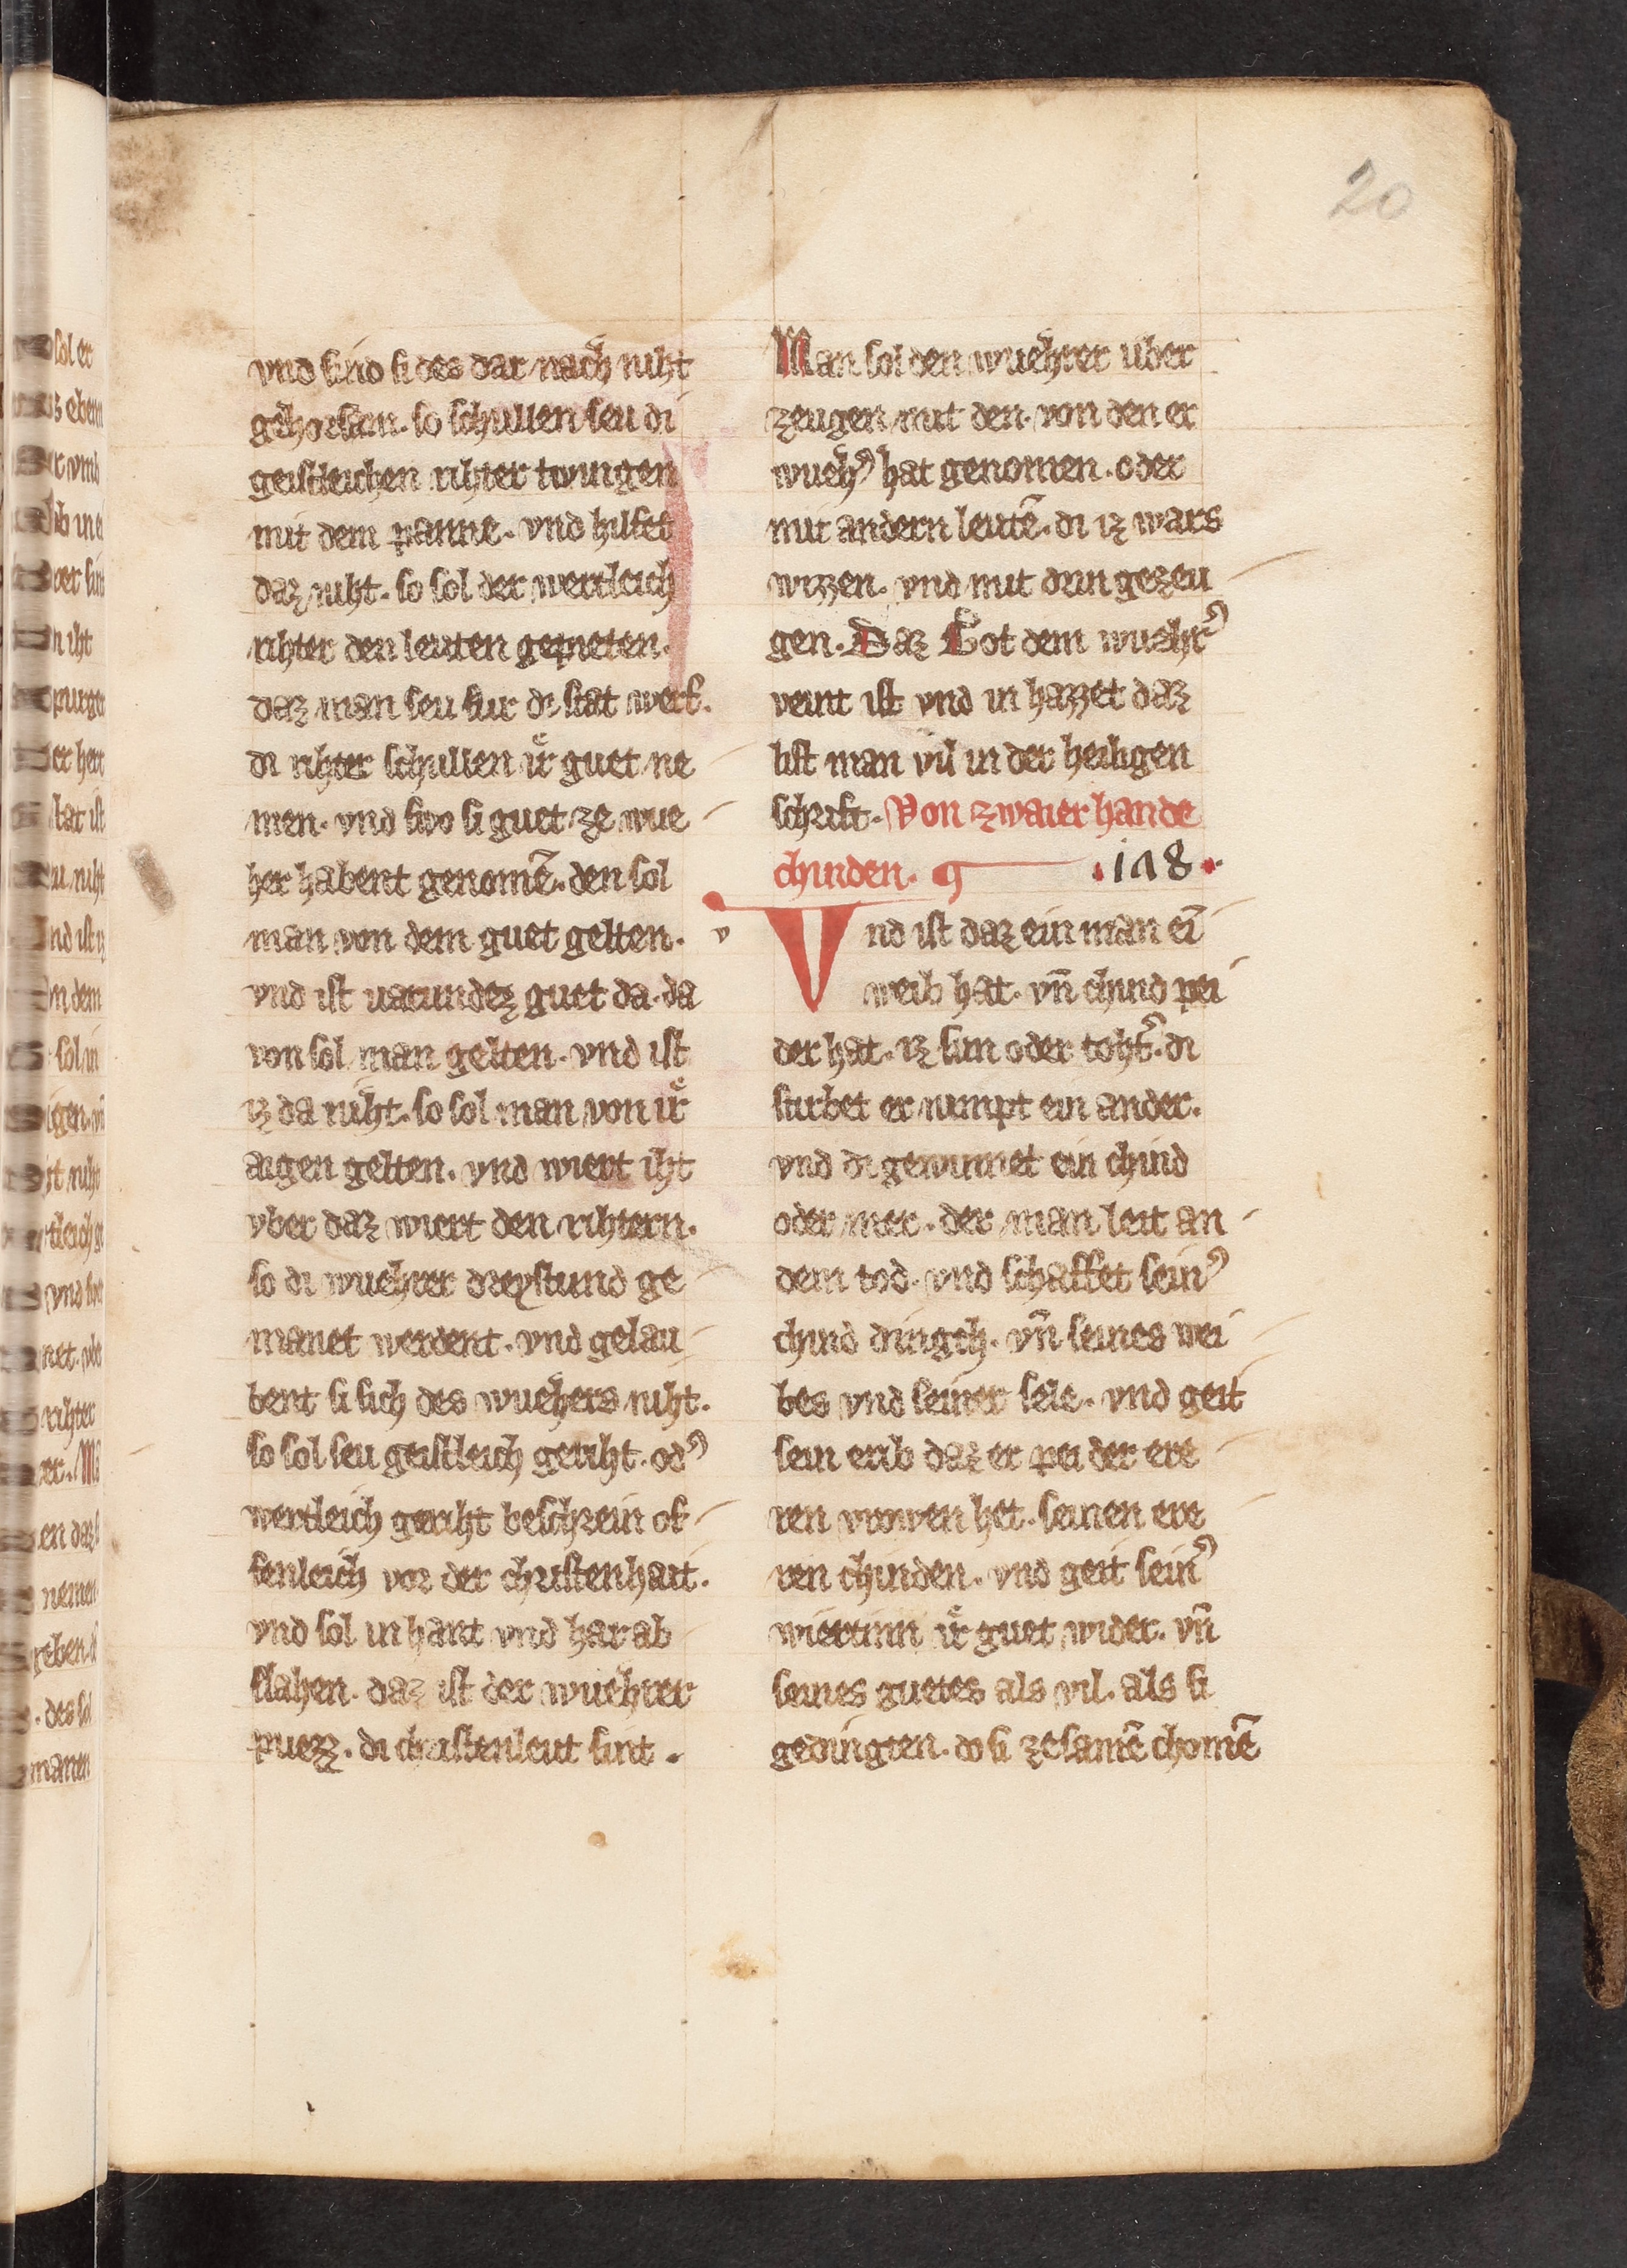 20
vnd sind si des dar nach niht
gehorsam. so schullen seu di
geistleichen rihter twingen
mit dem panne. vnd hilfet
daz niht. so sol der wertleich
rihter den leuten gepieten.
daz man seu fur di stat werf.
di rihter schullen irͤ guet ne
men. vnd swo si guet ze wue
her habent genomē. den sol
man von dem guet gelten.
vnd ist uarundez guet da. da
von sol man gelten. vnd ist
iz da niht. so sol man von irͤ
aigen gelten. vnd wiert iht
vber daz wiert den rihtern.
so di wuehrer dreystund ge
manet werdent. vnd gelau
bent si sich des wuehers niht.
so sol seu geistleich geriht. od᾽
wertleich geriht beschrein of
fenleich vor der christenhait.
vnd sol in hant vnd har ab
slahen. daz ist der wuehrer
puezz. di christenleut sint.
Man sol den wuehrer uber
zeugen mit den. von den er
wueh᾽ hat genomen. oder
mit andern leutē. di iz wars
wizzen. vnd mit drin gezeu
gen. Daz Got dem wuehr᾽
veint ist vnd in hazzet daz
list man vil in der heiligen
schrift. Von zwaier hande
chinden. .118.
v
Vnd ist daz ein man eī
weib hat. vn̄ chind pei
der hat. iz sun oder toht᾽. di
stirbet er nimpt ein ander.
vnd di gewinnet ein chind
oder mer. der man leit an
dem tod. vnd schaffet sein᾽
chind dingch. vn̄ seines wei
bes vnd seiner sele. vnd geit
sein erib daz er pei der ere
ren vrowen het. seinen ere
ren chinden. vnd geit sein᾽
wiertinn irͤ guet wider. vn̄
seines guetes als vil. als si
gedingten. do si zesamē chomē